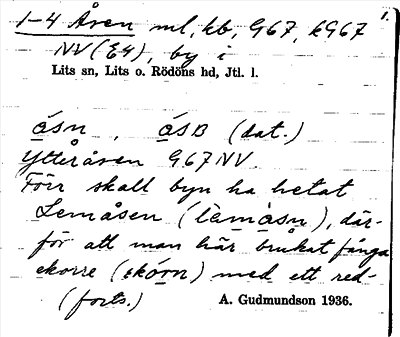 1.
1-4 Åsen ml, kb, G67, kG67
NV (E4), by i
Lits sn, Lits o. Rödöns hd, Jtl. l.
åsn, åsB (dat.)
Ytteråsen G67NV
Förr skall byn ha hetat
Lemåsen (lèmåsn), där-
för att man här brukat fånga
ekorre (ikórn) med ett red-
(forts.) A. Gudmundson 1936.